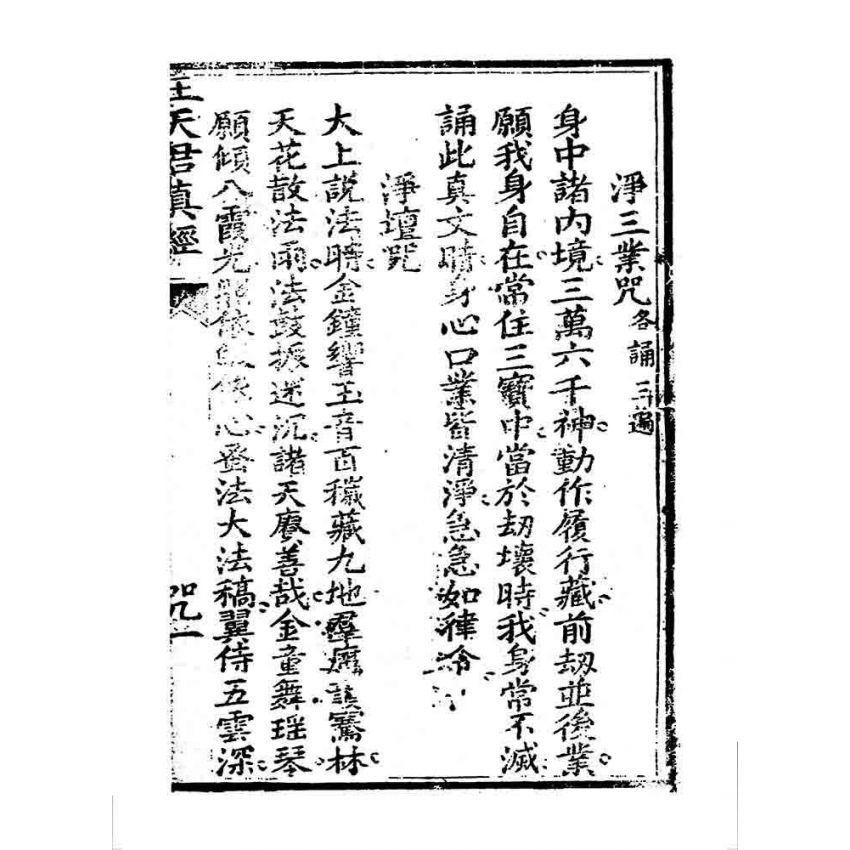 淨三業咒 各誦三遍
身中諸內境三萬六千神動作履行藏前劫並後業
願我身自在常住三寶中當於劫壞時我身常不滅
誦此真文時身心口業皆清淨急急如律令
淨壇咒
大上説法時金鐘響玉音百穢藏九地羣魔護騫林
天花散法雨法鼓振迷沉諸天賡善哉金童舞瑶琴
願傾八霞光 依 心蚤法大法稿翼侍五雲深
王天君真經
咒一